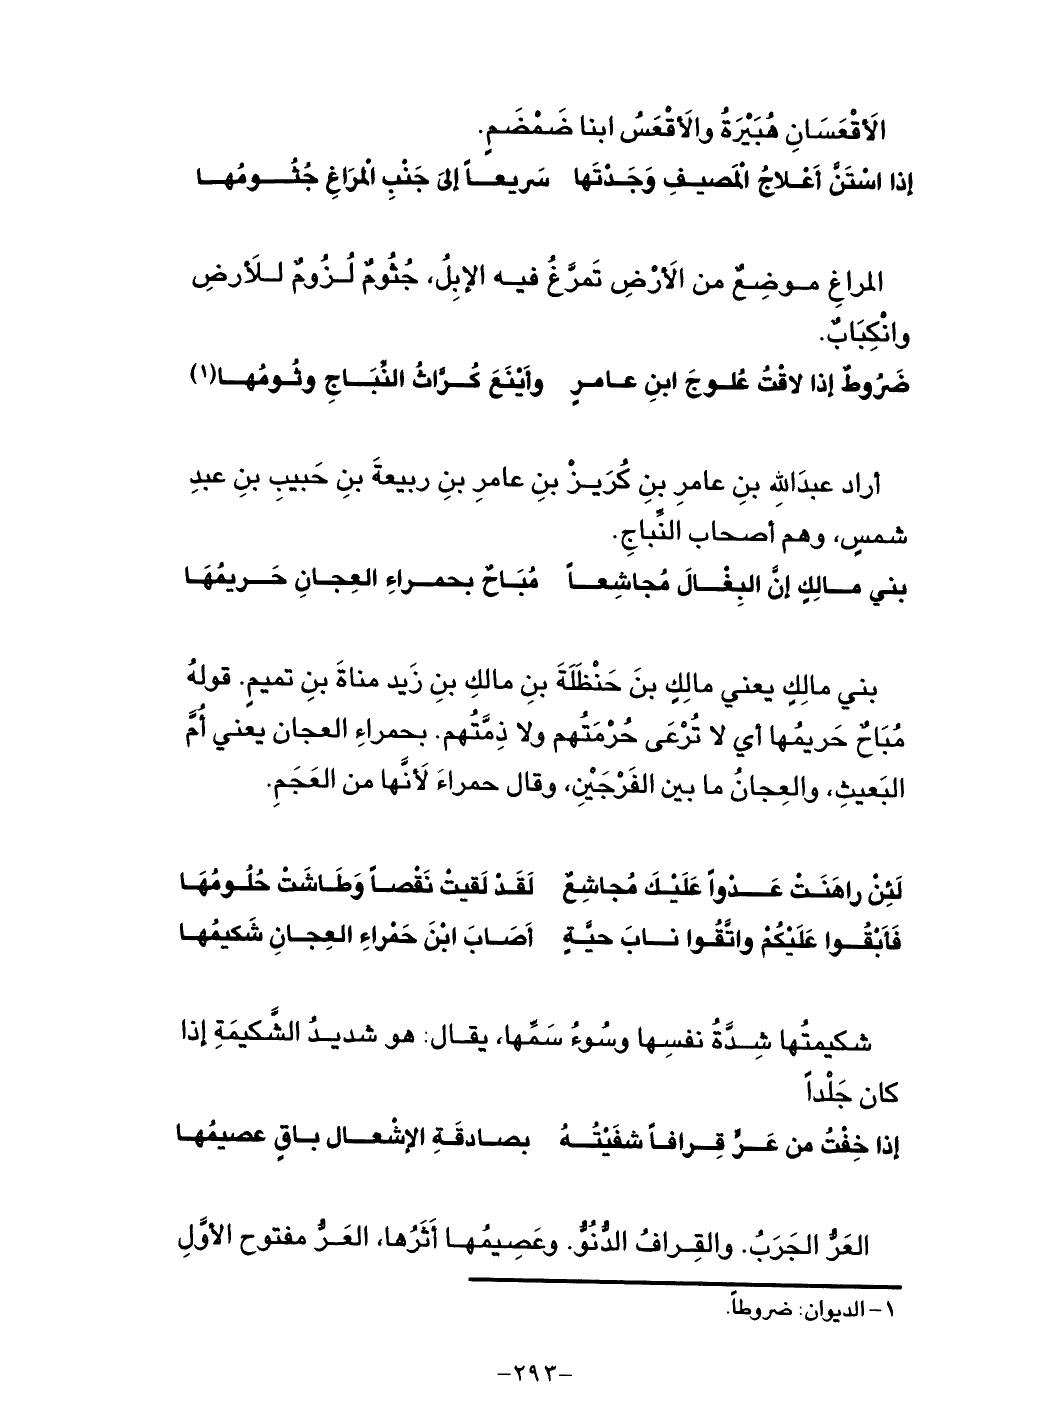 الَاقْعَسَانِ هُبَيْرَةُ والَاقْعَسُ ابنا ضَمْضَمٍ.
إذا اسْتَنَّ أعْـلاجُ الْمَصيـفِ وَجَـدْتَها سَريعـــاً إلىَ جَنْبِ الْمرَاغِ جُثُـــومُهـا
المراغِ مـوضِـعٌ من الَأرْضِ تَمرَّغُ فيـه الإبِلُ، جُثُومٌ لُـزُومٌ لـلَأرضِ
وانْكِبَابٌ.
ضَرُوطٌ إذا لاقْتُ عُلـوجَ ابنِ عـامـرٍ وأيْنَعَ كُــرَّاثُ النِّبَــاجِ وثُـومُهـا(١)
أراد عبدَاللهِ بنِ عامرِ بنِ كُرَيـزْ بنِ عامرِ بنِ ربيعةَ بنِ حَبيبِ بنِ عبدِ
شمسٍ، وهم أصحاب النِّباجِ.
بني مـــالِكٍ إنَّ البِغْــالَ مُجاشِعــاً مُبَـاحٌ بحمــراءِ العِجـانِ حَــريمُهَـا
بني مالِكٍ يعني مالِكٍ بنَ حَنْظَلَةَ بنِ مالكِ بنِ زَيد مناةَ بنِ تميمٍ. قولهُ
مُبَاحٌ حَريمُها أي لا تُرْعَى حُرْمَتُهم ولا ذِمَّتُهم. بحمراءِ العجان يعني أُمَّ
البَعيثِ، والعِجانُ ما بين الفَرْجَيْنِ، وقال حمراءَ لَأنَّها من العَجَمِ.
لَئِنْ راهَنَـتْ عَــــدْواً عَلَيْـكَ مُجاشِعٌ لَقَـدْ لَقيتْ نَقْصـاً وَطَـاشَتْ حُلُـومُهَـا
فَأبْقُــوا عَلَيْكُمْ واتَّقُـوا نــابَ حيَّـةٍ أصَـابَ ابْنَ حَمْراءِ العِجـانِ شَكيمُهـا
شكيمتُها شِـدَّةُ نفسِـها وسُوءُ سَمِّها، يقـال: هو شديـدُ الشَّكيمَةِ إذا
كان جَلْداً
إذا خِفْتُ من عَــرٍّ قِـرافـاً شفَيْتُــهُ بصـادقَـةِ الإشْعـال بـاقٍ عصيمُهـا
العَرُّ الجَرَبُ. والقِـرافُ الدُّنُوُّ. وعَصِيمُهـا أثَرُها، العَـرُّ مفتوح الأوَّلِ
١- الديوان: ضروطاً.
-٢٩٣-